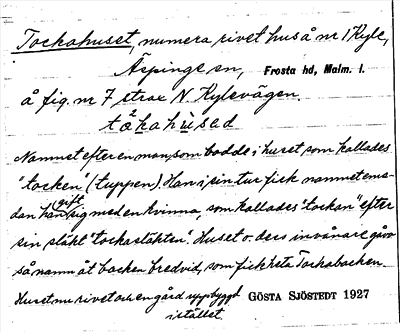 Tockahuset, numera rivet hus å nr 1 Kyle,
Äspinge sn, Frosta hd, Malm. l.
å fig. nr 7 strax N. Kylevägen.
tåkahùsad
Namnet efter en man, som bodde i huset som kallades
"tocken" (tuppen). Han i sin tur fick namnet eme-
dan han gift sig med en kvinna, som kallades "tockan" efter
sin släkt "tockasläkten". Huset o. dess invånare gåvo
så namn åt backen bredvid, som fick heta Tockabacken.
Huset nu rivet och en gård uppbyggd GÖSTA SJÖSTEDT 1927
istället.